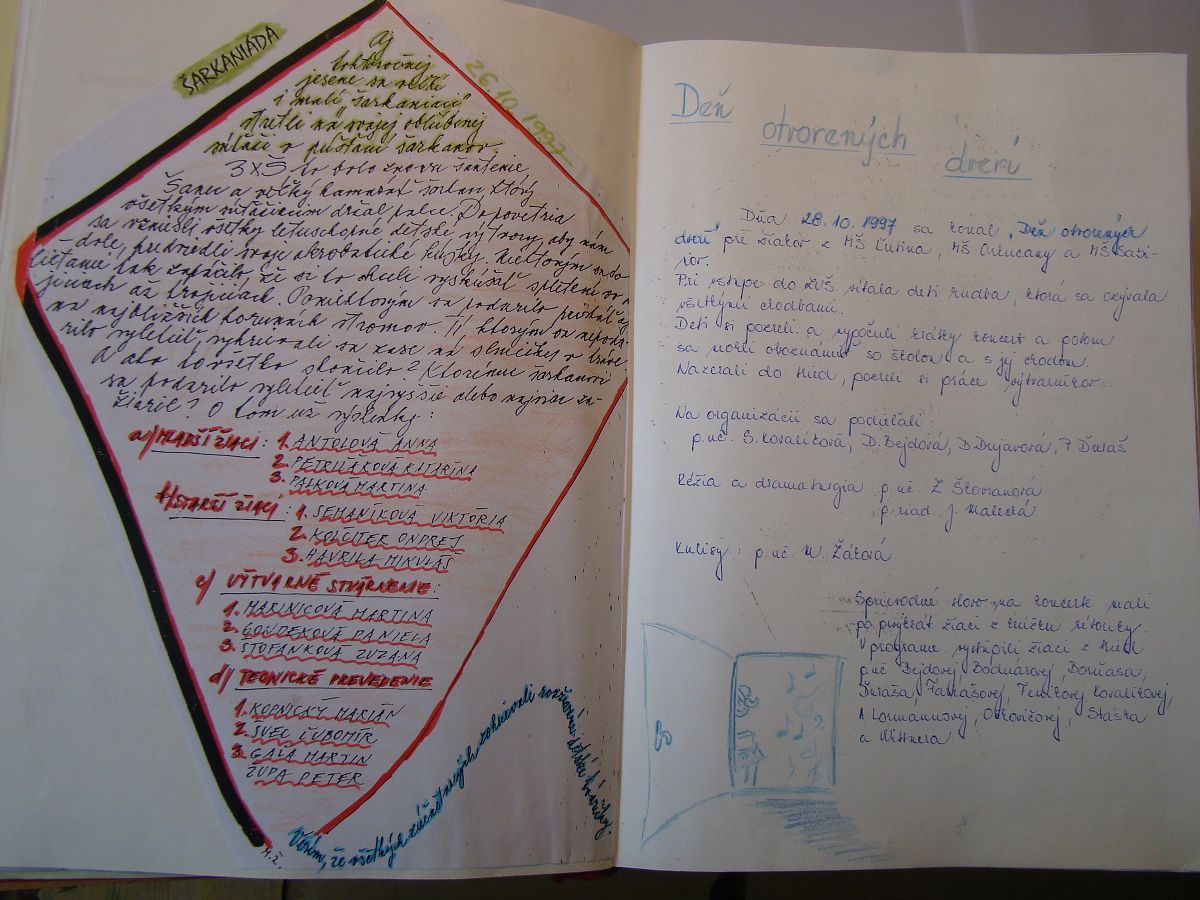 ŠARKANIÁDA
26.10.1997
Aj
tohtoročnej
jesene sa veľkí
i malí "šarkaniaci"
stretli na svojej obľúbenej
súťaži v púšťaní šarkanov.
3xŠ to bolo znovu šantenie,
Šanca a veľký kamarát šarkan, ktorý
všetkým súťažiacim držal palce. Do povetria
sa vzniesli všetky letuschopné detské výtvory, aby nám
dole, predviedli svoje akrobatické kúsky. Niektorým sa to
lietanie tak zapáčilo, že si to chceli vyskúšať spletení vo
jiciach až trojiciach. Poniektorým sa podarilo pristáť aj
na najbližších korunách stromov. Tí, ktorým sa nepoda-
rilo vyletieť, vyhrievali sa zase na slniečku v tráve.
A ako to všetko skončilo? Ktorému šarkanovi
sa podarilo vyletieť najvyššie alebo najviac za-
žiaril? O tom už výsledky:
a/ MLADŠÍ ŽIACI: 1. ANTOLOVÁ ANNA
2. PETRUŠÁKOVÁ KATARÍNA
3. PALKOVÁ MARTINA
b/ STARŠÍ ŽIACI: 1. SEMANÍKOVÁ VIKTÓRIA
2. KOLČITER ONDREJ
3. HAVRILA MIKULÁŠ
c/ VÝTVARNÉ STVÁRNENIE:
1. MARINICOVÁ MARTINA
2. GOLDEKOVÁ DANIELA
3. ŠTOFANKOVÁ ZUZANA
d/ TECHNICKÉ PREVEDENIE
1. KOPNICKÝ MARIÁN
2. ŠVEC ĽUBOMÍR
3. GALA MARTIN
ŽUPA PETER
M.Ž.
Verím, že všetkých zúčastnených zohrievali rozžiarené detské tváričky.
Deň
otvorených
dverí
Dňa 28.10.1997 sa konal "Deň otvorených
dverí" pre žiakov z MŠ Ľutina, MŠ Orkucany a MŠ Sabi-
nov.
Pri vstupe do ZUŠ vítala deti hudba, ktorá sa ozývala
všetkými chodbami.
Deti si pozreli a vypočuli krátky koncert a potom
sa mohli oboznámiť so školou a s jej chodom.
Nazerali do tried, pozreli si práce výtvarníkov.
Na organizácii sa podieľali:
p. uč. S. Kovalíková, D. Bejdová, D. Dujavová, P. Ďuraš
Réžia a dramaturgia: p. uč. Z. Štofanová
p. riad. J. Malecká
Kulisy: p. uč. M. Žáková
Sprievodné slovo na koncerte mali
po prvýkrát žiaci z krúžku rétoriky.
V programe vystúpili žiaci z tried
p. uč. Bejdovej, Bodnárovej, Borťasa,
Ďuraša, Fottašovej, Kovalíkovej,
A. Lormannovej, Stašku
a Wittnera.